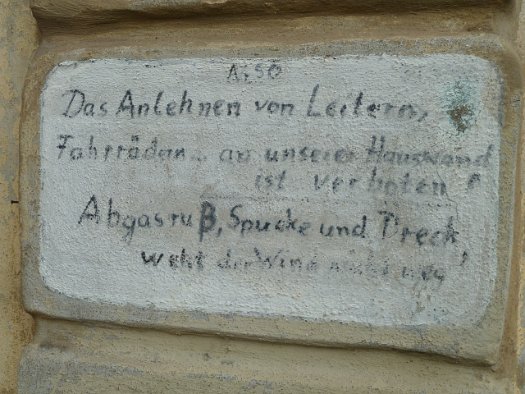 Also
Das Anlehnen von Leitern,
Fahrrädern.. an unserer Hauswand
ist verboten!
Abgasruß, Spucke und Dreck
weht der Wind nicht weg!